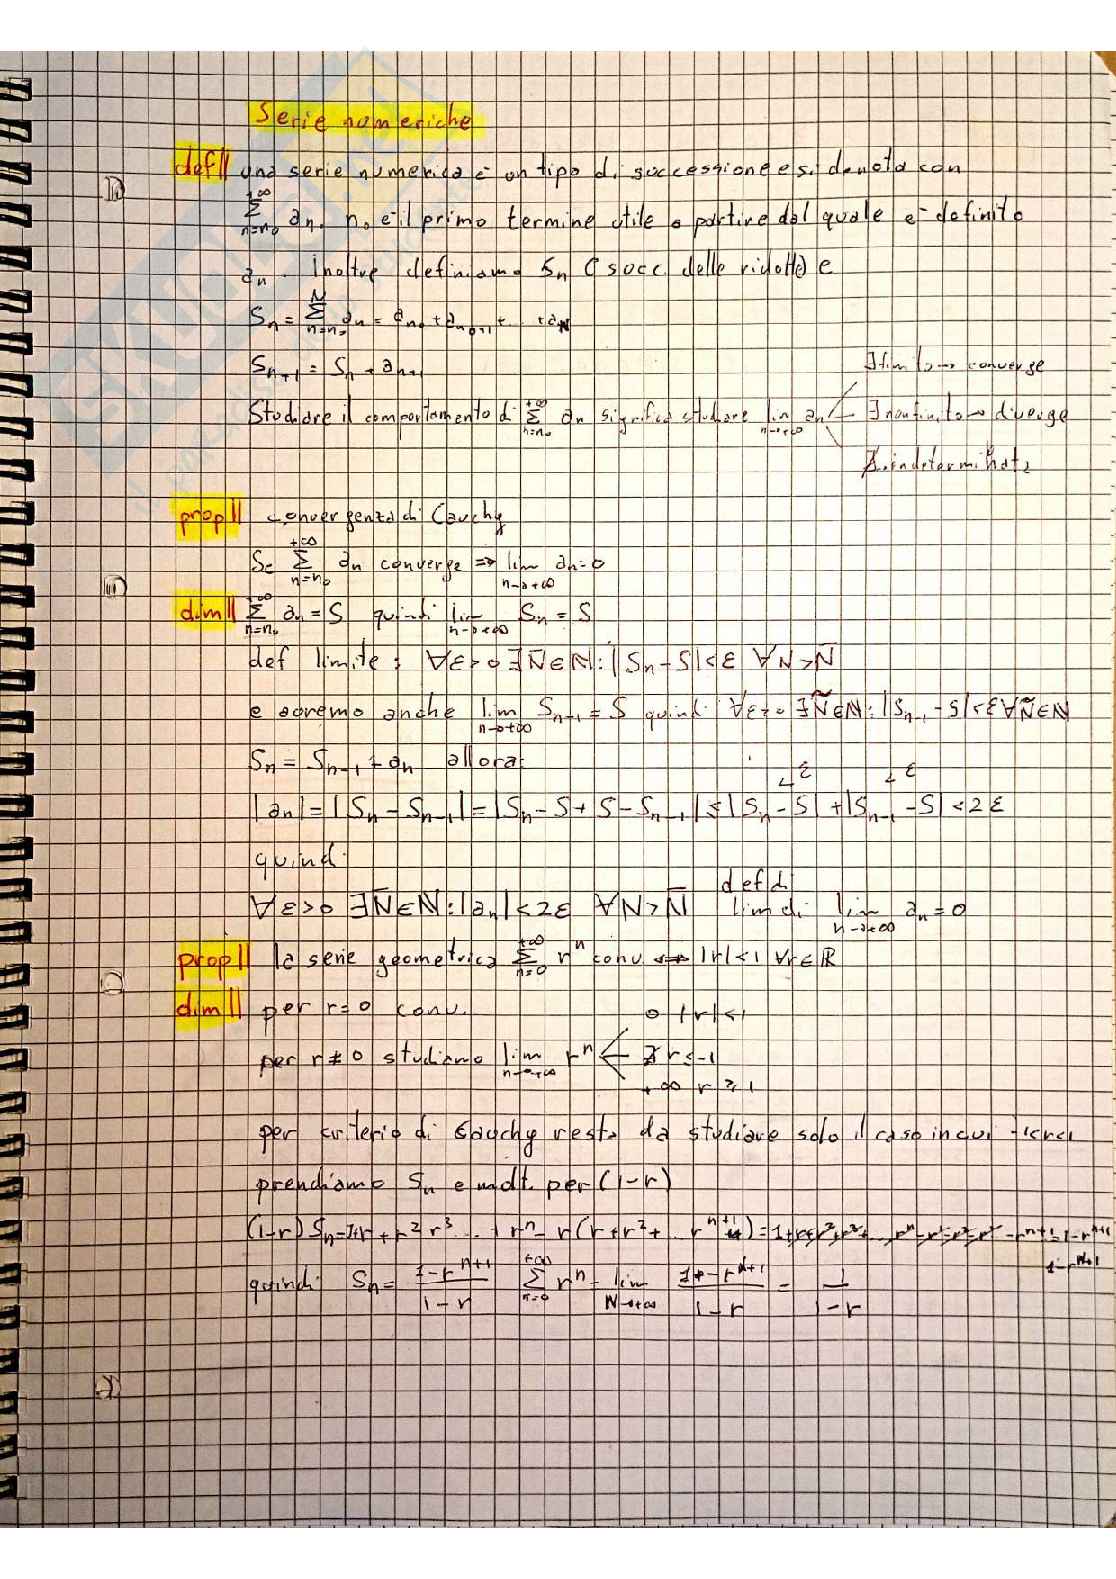 Serie numeriche
def|| una serie numerica è un tipo di successione e si denota con
+∞ Σ n=n₀ an. n₀ è il primo termine utile a partire dal quale è definito
an. Inoltre definiamo Sn (succ. delle ridotte) e
Sn = N Σ n=n₀ an = an₀ + an₀+1 + .. + aN
Sn+1 = Sn + an+1
∃ finito → converge
Studiare il comportamento di +∞ Σ n=n₀ an significa studiare lim n→+∞ an ∃ non finito → diverge
∄ indeterminata
prop|| convergenza di Cauchy
Se +∞ Σ n=n₀ an converge ⇒ lim n→+∞ an=0
dim|| +∞ Σ n=n₀ an = S quindi lim n→+∞ Sn = S
def limite: ∀ε>0 ∃N̄∈ℕ: |Sn-S|<ε ∀N>N̄
e avremo anche lim n→+∞ Sn-1 = S quindi ∀ε>0 ∃Ñ∈ℕ: |Sn-1-S|<ε ∀Ñ∈ℕ
Sn = Sn-1 + an allora:
<ε <ε
|an| = |Sn-Sn-1| = |Sn-S+S-Sn-1| ≤ |Sn-S| + |Sn-1-S| < 2ε
quindi
∀ε>0 ∃N̄∈ℕ: |an|<2ε ∀N>N̄ def di lim di lim n→+∞ an=0
prop|| la serie geometrica +∞ Σ n=0 rⁿ conv. ⇔ |r|<1 ∀r∈ℝ
dim|| per r=0 conv.
0 |r|<1
per r≠0 studiamo lim n→+∞ rⁿ ∄ r≤-1
+∞ r≥1
per criterio di Cauchy resta da studiare solo il caso in cui
prendiamo Sn e molt. per (1-r)
(1-r)Sn=1+r+r²r³... rⁿ-r(r+r²+ rⁿ⁺¹)=1+r+r²+r³+... rⁿ-r-r²-r³-rⁿ⁺¹=1-rⁿ⁺¹
1-rⁿ⁺¹
quindi Sn = 1-rⁿ⁺¹ / 1-r +∞ Σ n=0 rⁿ = lim N→+∞ 1-rᴺ⁺¹ / 1-r = 1 / 1-r